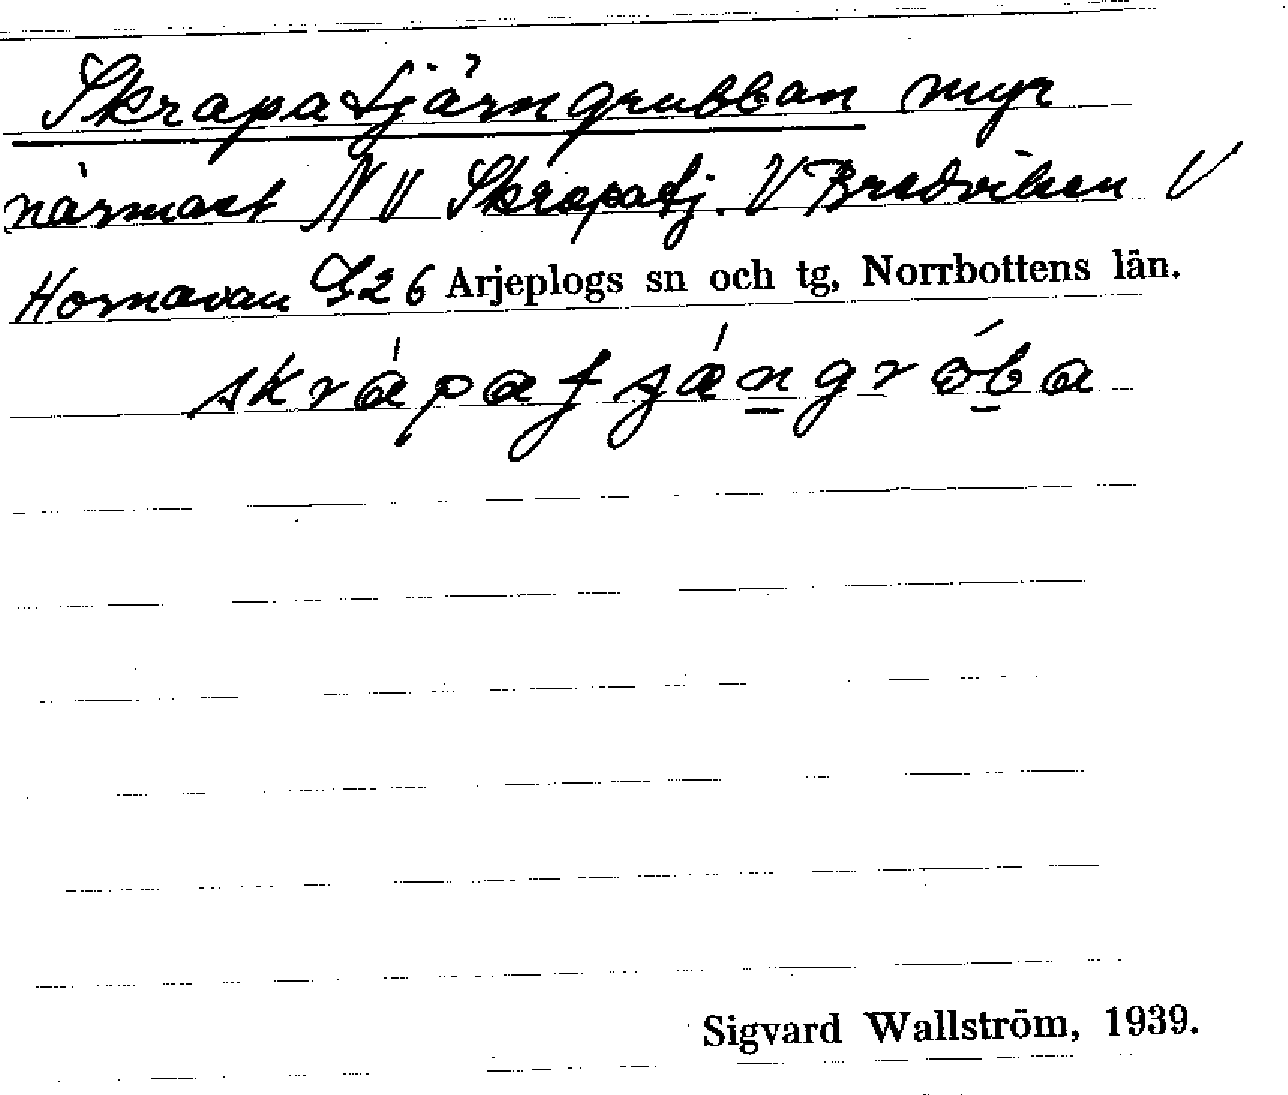 Skrapatjärngrubban myr
närmast N V Skrapatj. V Bredviken V
Hornavan G26 Arjeplogs sn och tg, Norrbottens län.
skràpatjǽngróba
Sigvard Wallström, 1939.